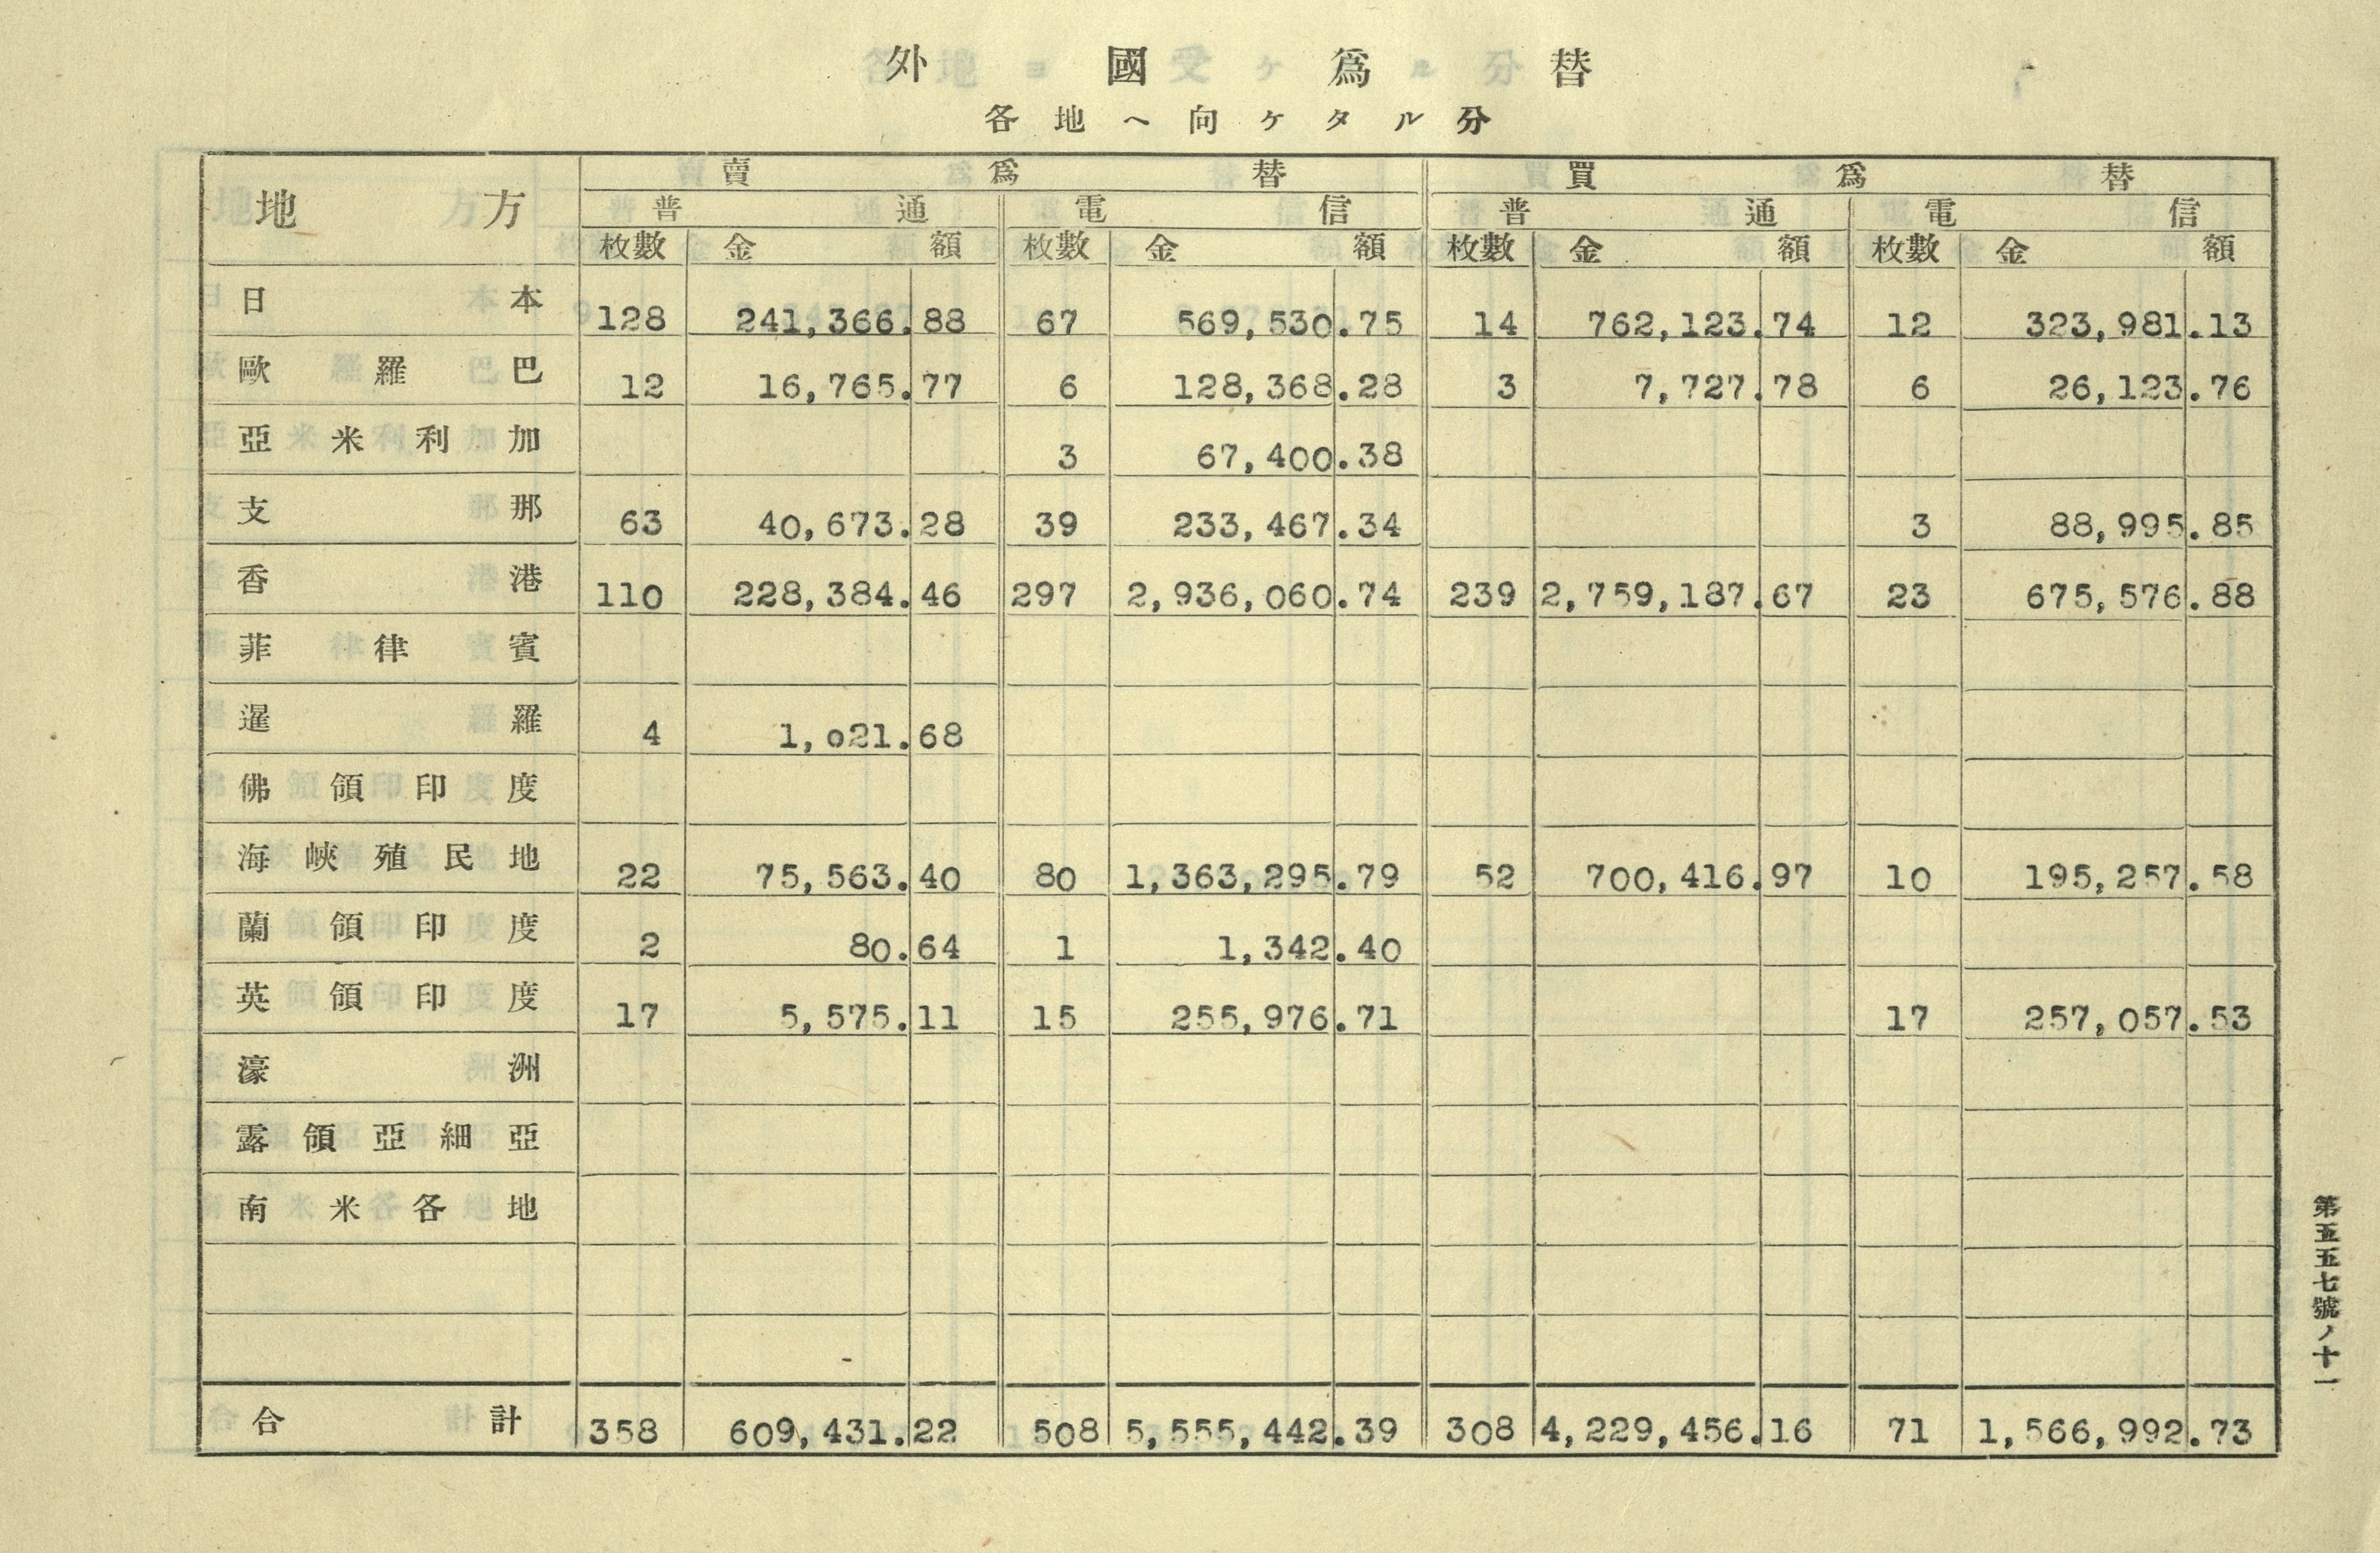 外國爲替
各地ヘ向ケタル分
地方 賣爲替 買爲替
普通 電信 普通 電信
枚數 金額 枚數 金額 枚數 金額 枚數 金額
日本 128 241,366.88 67 569,530.75 14 762,123.74 12 323,981.13
歐羅巴 12 16,765.77 6 128,368.28 3 7,727.78 6 26,123.76
亞米利加 3 67,400.38
支那 63 40,673.28 39 233,467.34 3 88,995.85
香港 110 228,384.46 297 2,936,060.74 239 2,759,187.67 23 675,576.88
菲律賓
暹羅 4 1,021.68
佛領印度
海峽殖民地 22 75,563.40 80 1,363,295.79 52 700,416.97 10 195,257.58
蘭領印度 2 80.64 1 1,342.40
英領印度 17 5,575.11 15 255,976.71 17 257,057.53
濠洲
露領亞細亞
南米各地
合計 358 609,431.22 508 5,555,442.39 308 4,229,456.16 71 1,566,992.73
第五五七號ノ十一